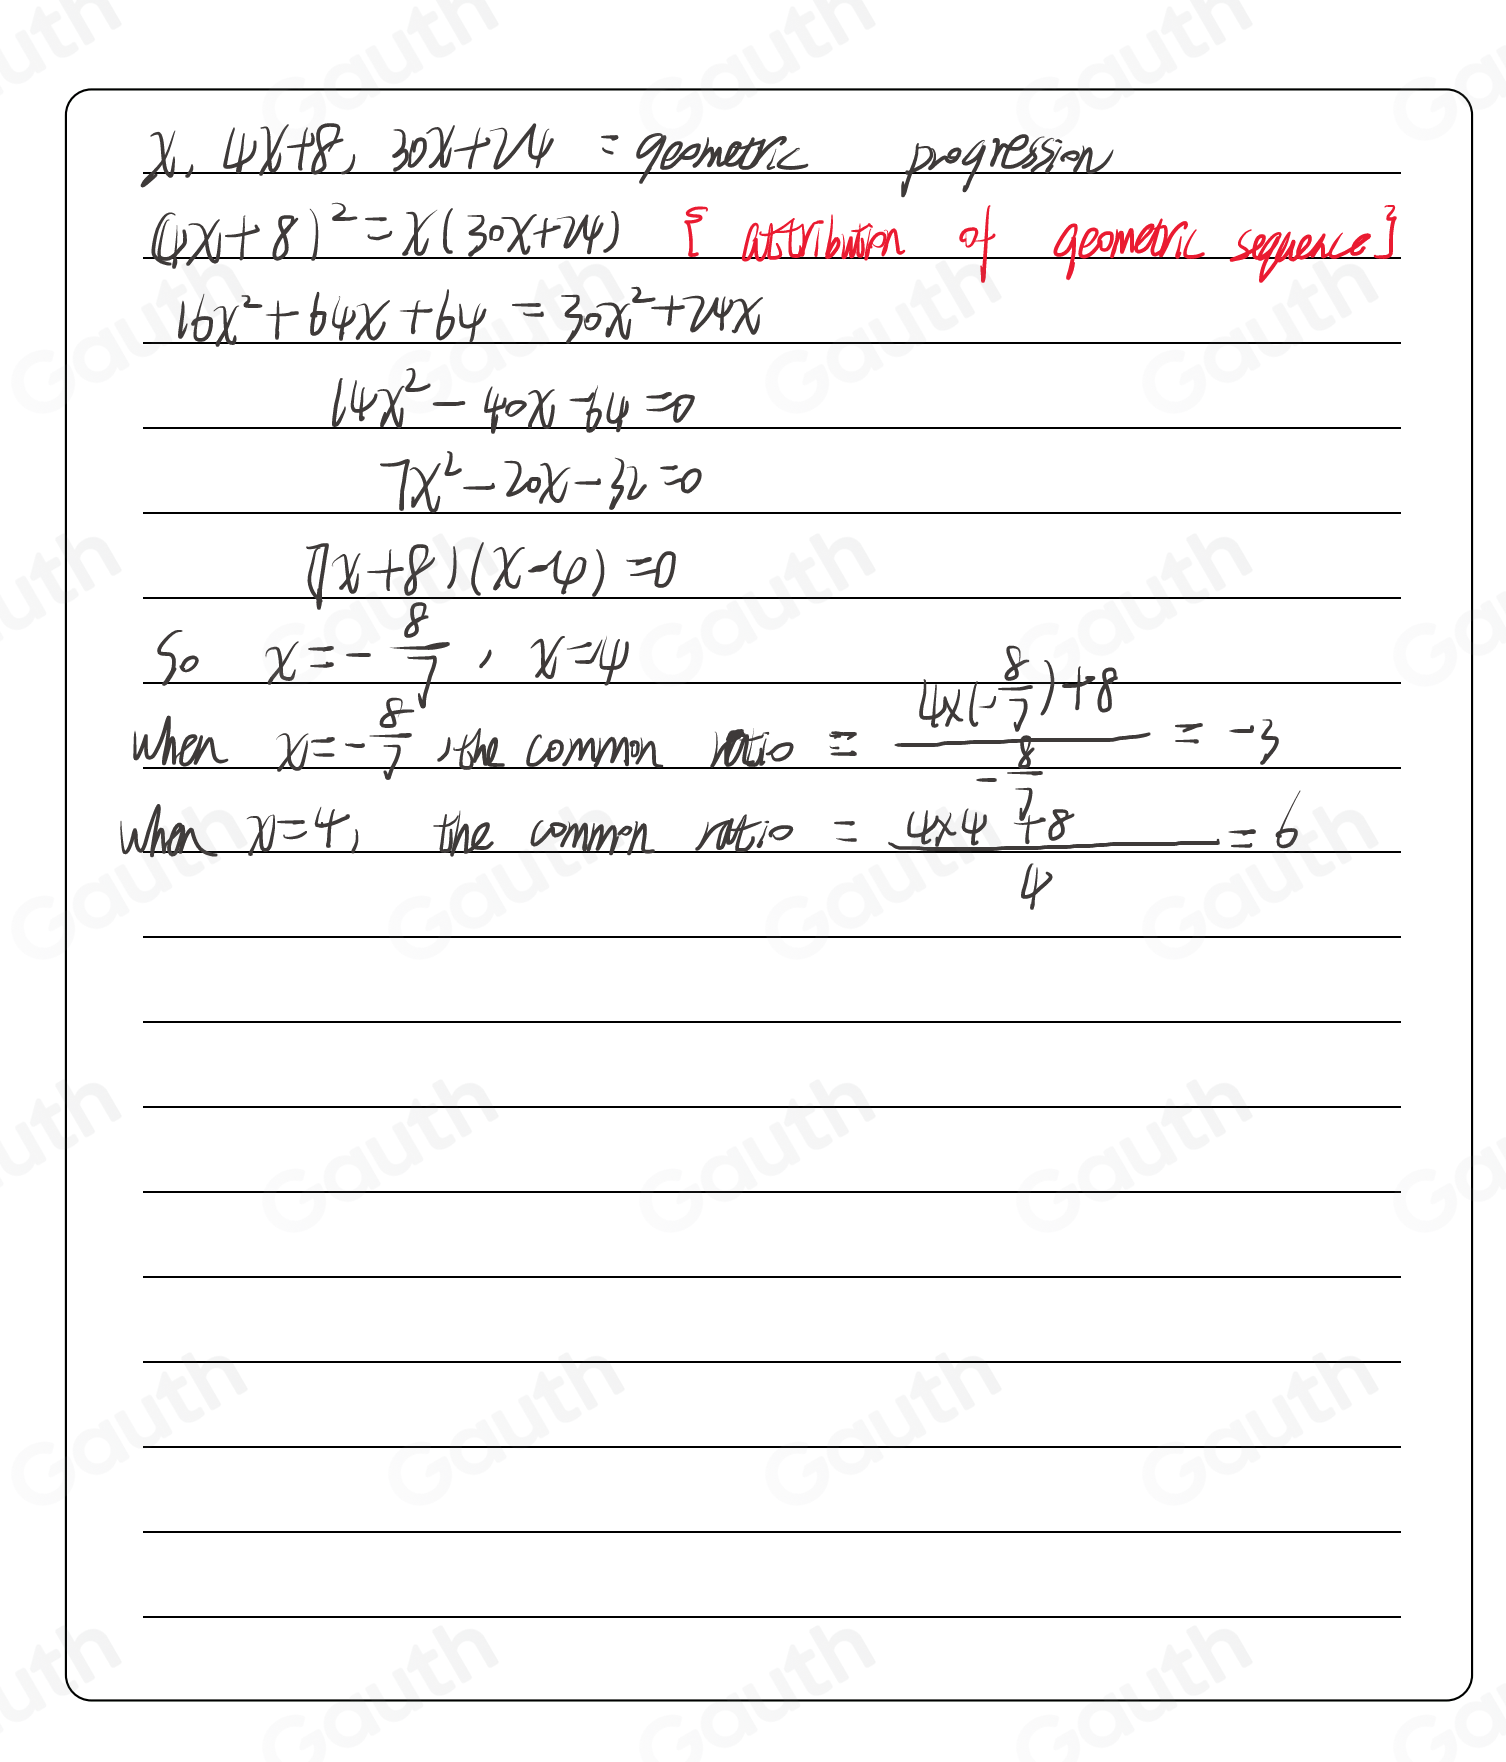 x, 4x+8, 30x+24 = geometric progression
(4x+8)² = x(30x+24) [attribution of geometric sequence]
16x² + 64x + 64 = 30x² + 24x
14x² - 40x - 64 = 0
7x² - 20x - 32 = 0
(7x+8)(x-4) = 0
So x = -8/7, x = 4
when x = -8/7, the common ratio = (4×(-8/7)+8)/(-8/7) = -3
when x = 4, the common ratio = (4×4+8)/4 = 6